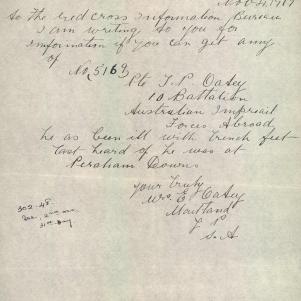 Nov 21, 1917
to the Red Cross Information Bureau
I am writing to you for
information if you can get any
of
No 5169
Pte T. P. Oatey
10 Battalion
Australian Impreial
Forces Abroad
he as been ill with trench feet
last heard of he was at
Peraham Downs
your truly
Mrs E Oatey
Maitland
S.A
302-48